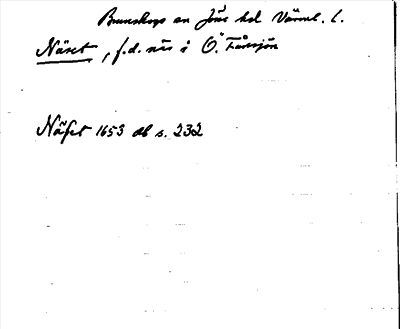 Brunskogs sn Jösse hd Värml. l.
Näset, f.d. näs i Ö. Fårsjön
Näset 1653 db s. 232